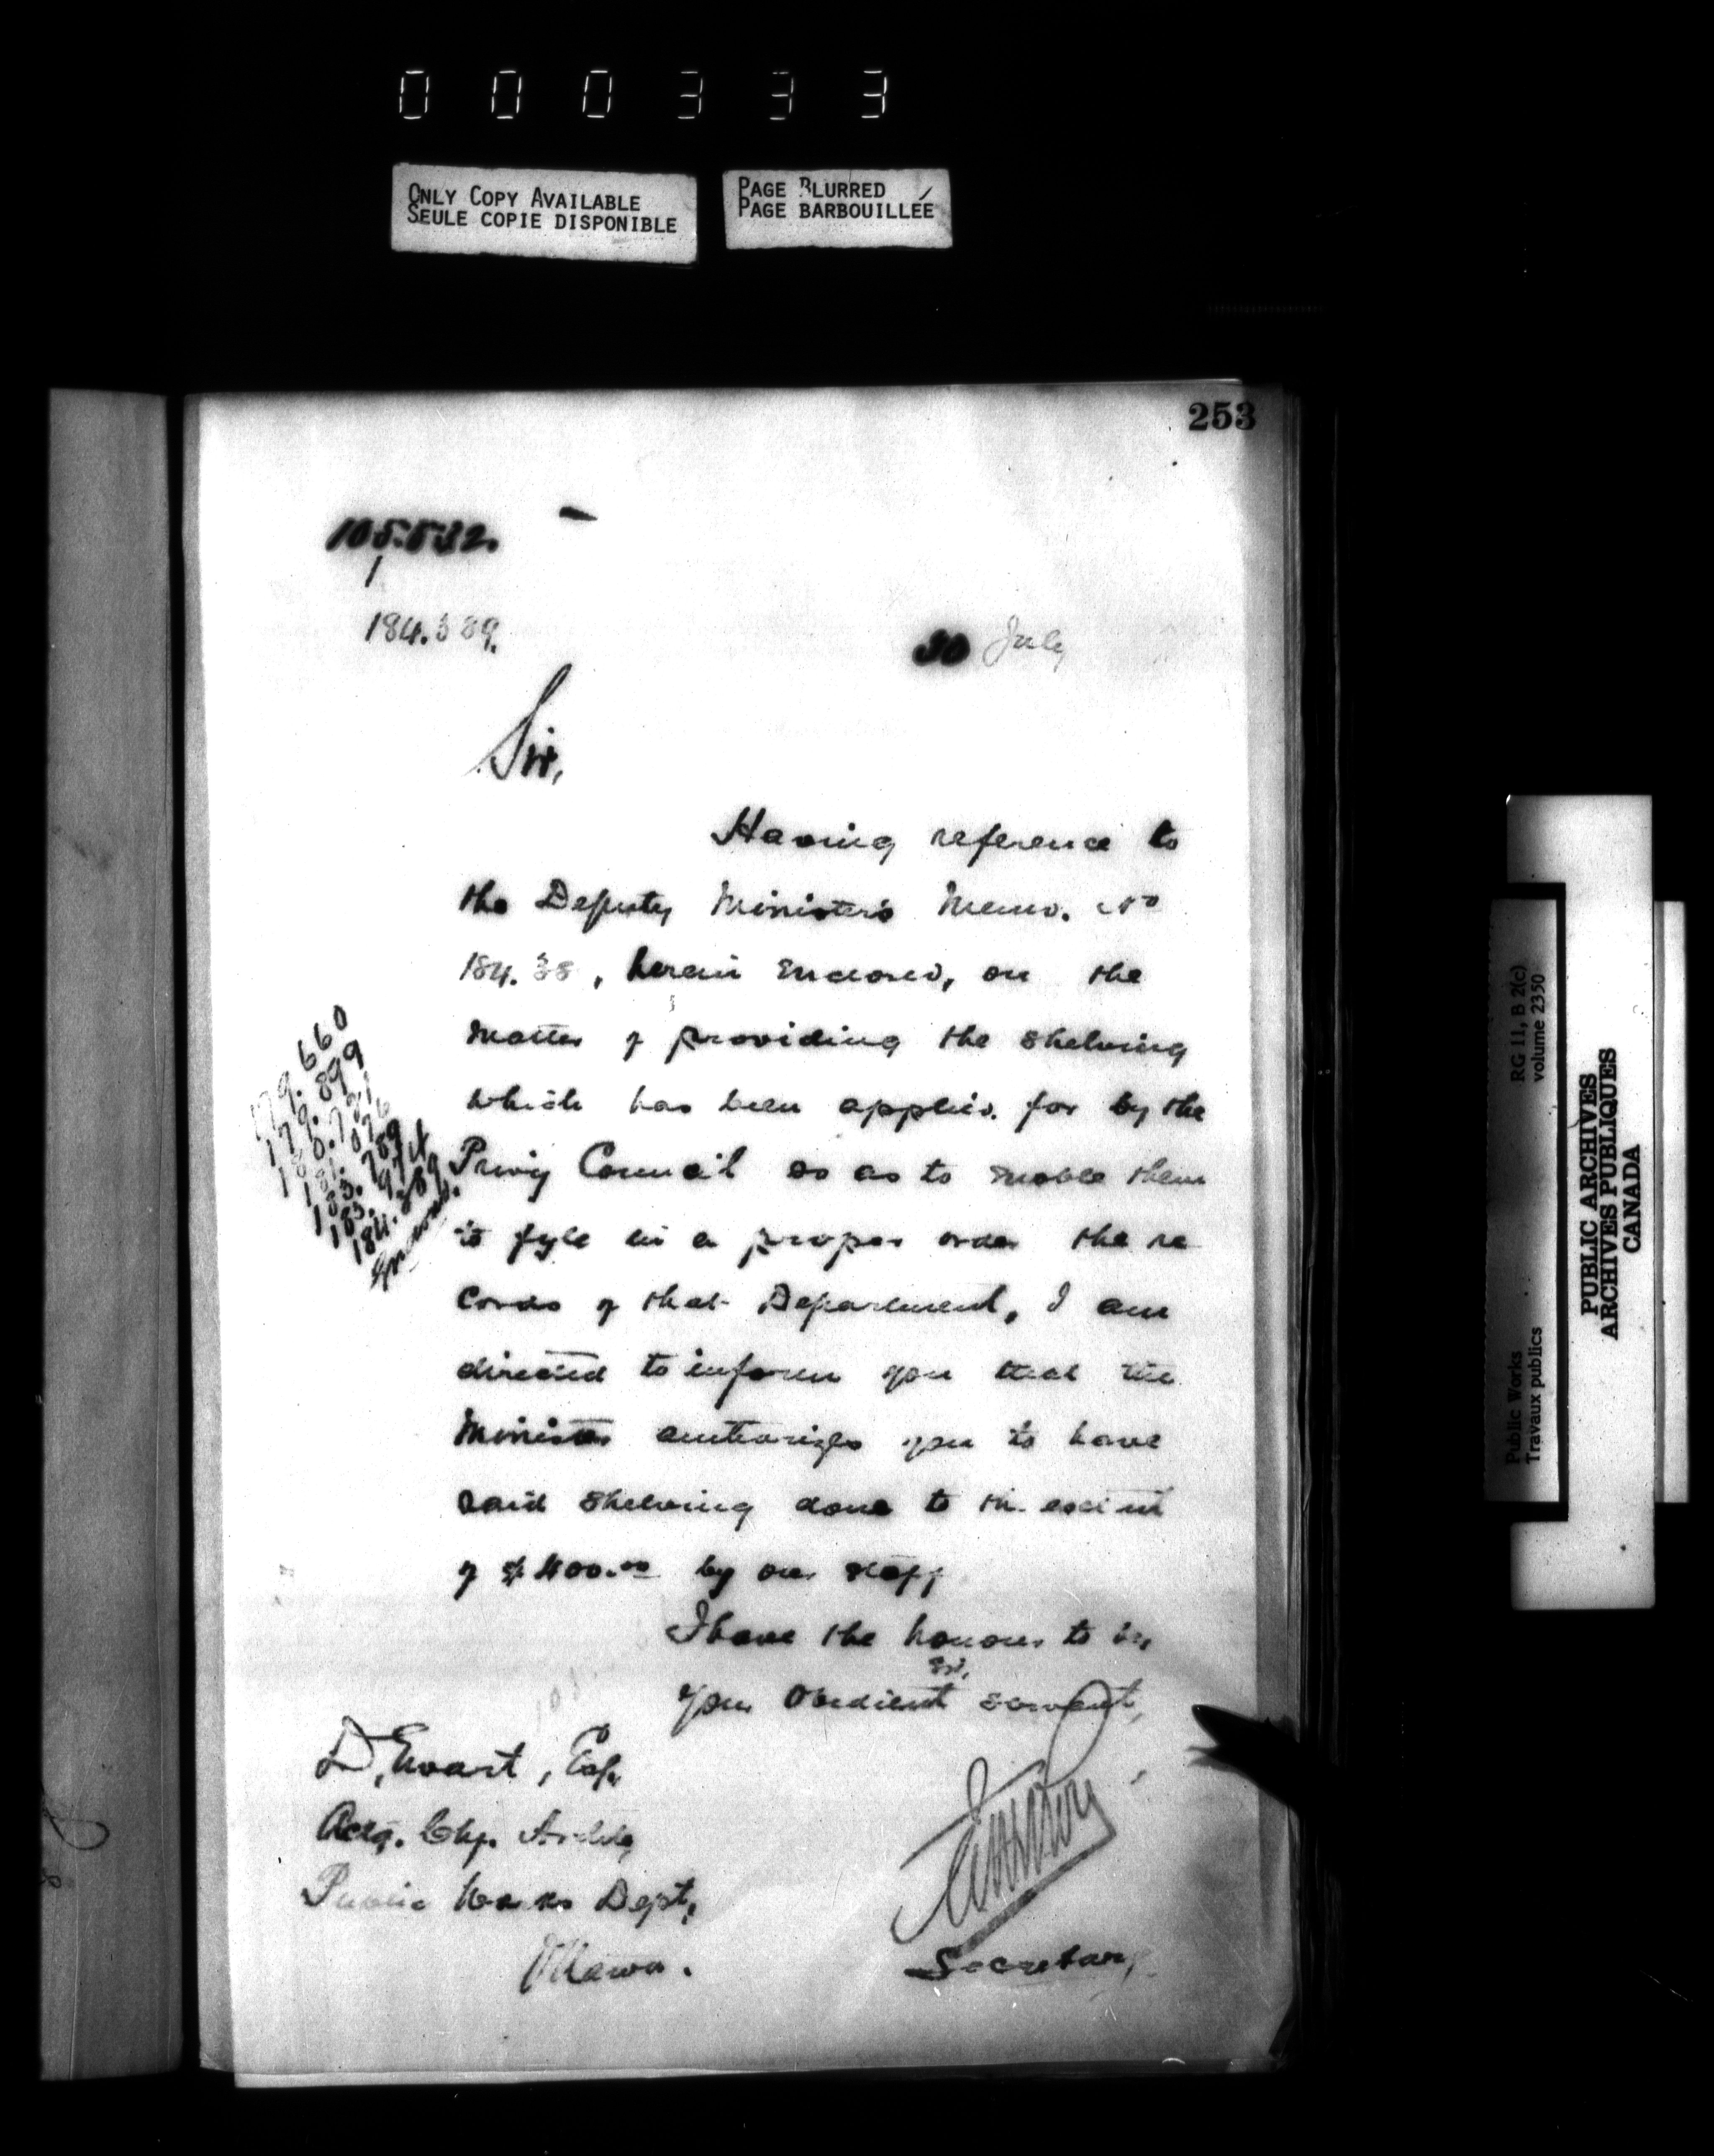 000333
ONLY COPY AVAILABLE
SEULE COPIE DISPONIBLE
PAGE BLURRED
PAGE BARBOUILLÉE
253
105.532.
1
184.389.
30 July
Sir,
Having reference to
the Deputy Minister's Memo. No
184.38 , herein Enclosed, on the
matter of providing the shelving
which has been applied for by the
Privy Council so as to enable them
to fyle in a proper order the re
cords of that Department, I am
directed to inform you that the
Minister authorizes you to have
said shelving done to the extent
of $400.00 by our staff
I have the honour to be,
Sir,
Your Obedient servant,
179.660
179.899
183.789
183.974
184.389
Enclosed.
D. Ewart, Esq.
Actg. Chf. Archt,
Public Works Dept,
Ottawa.
Secretary
Public Works
Travaux publics
RG 11, B 2(c)
volume 2350
PUBLIC ARCHIVES
ARCHIVES PUBLIQUES
CANADA